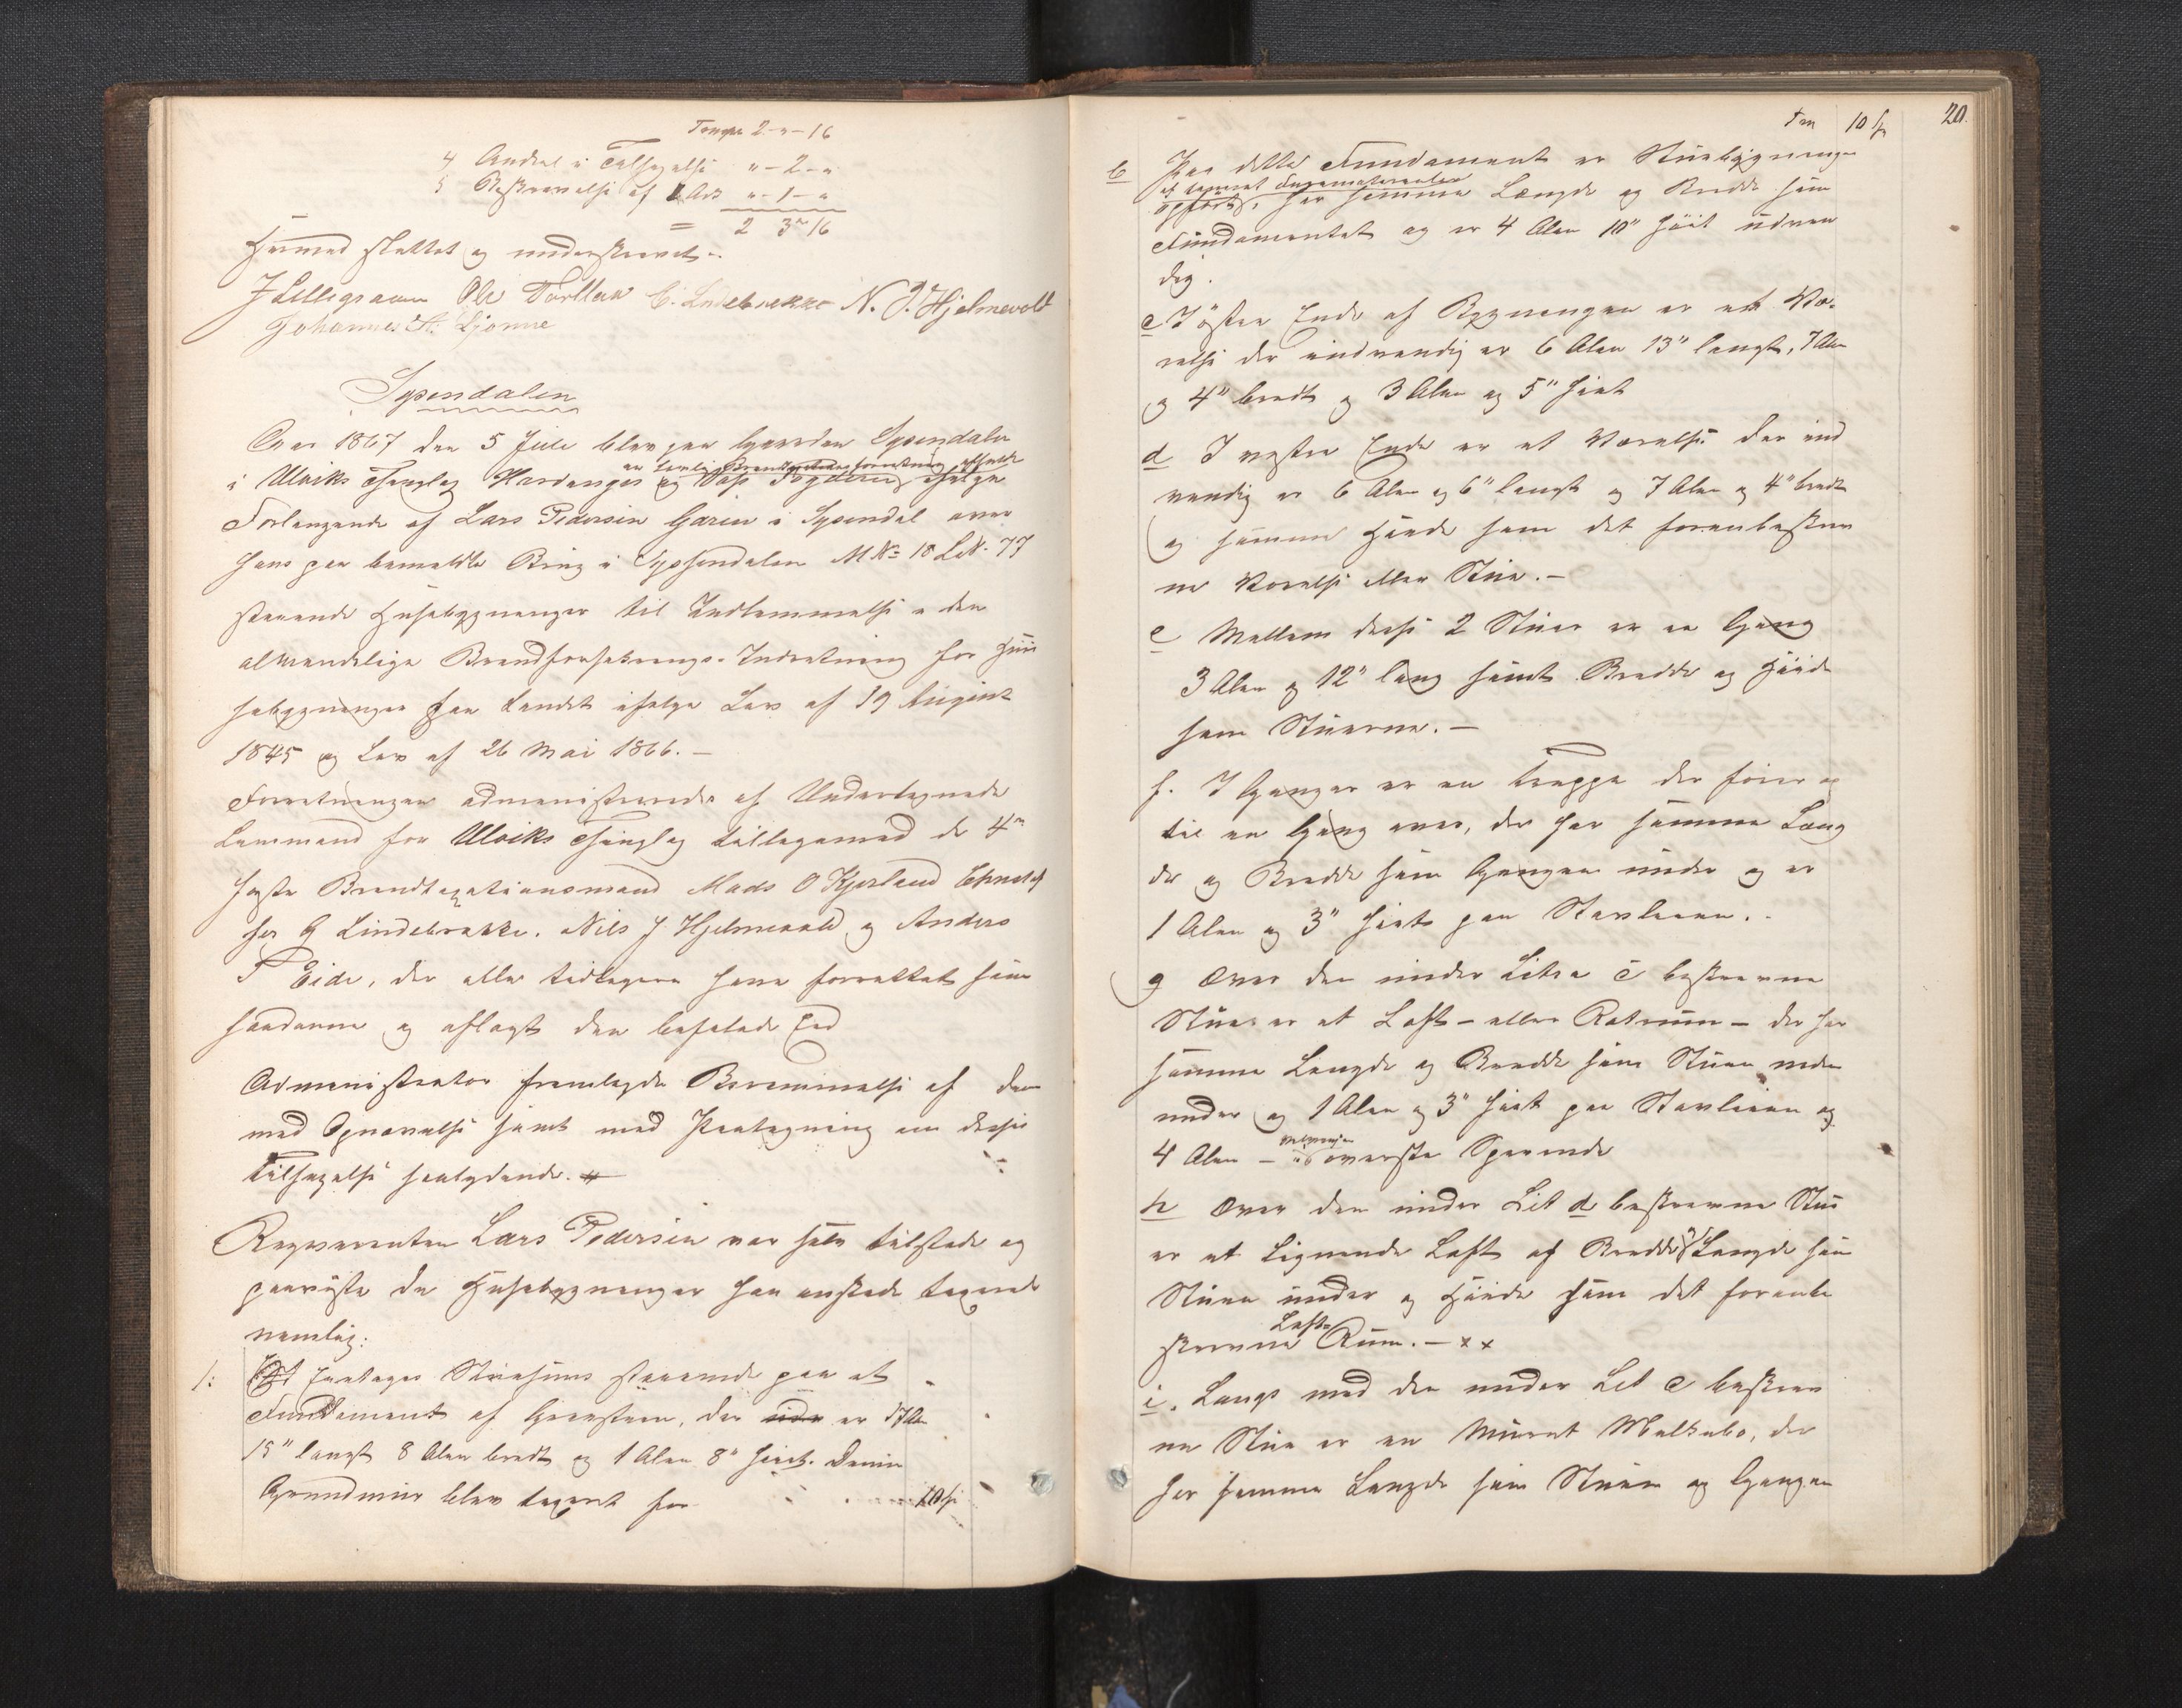 Transp 2 - " - 16
4 Andel i Tilsigelse " - 2 - "
5 Beskrivelse af 1 Ark " - 1 - "
= 2 3 " 16
Hermed sluttet og underskrevet.
J Lilligraven Ole Torblaa C. Lindebrække N. J. Hjelmevold
Johannes A. Ljonne
Sysendalen
Aar 1867 den 5 Juli blev paa Gaarden Sysendalen
en lovlig Brandtaxationsforretning afholdt
i Ulviks Thinglag Hardanger og Voss Fogderi ifølge
Forlangende af Lars Pedersen Garen i Sysendal over
hans paa bemeldte Brug i Syssendalen M No 18 L. N. 77
staaende Husebygninger til Indlemmelse i den
almindelige Brandforsikrings-Indretning for Huu
sebygninger paa Landet ifølge Lov af 19 August
1845 og Lov af 26 Mai 1866. –
Forretningen administreredes af Undertegnede
Lensmand for Ulviks Thinglag tilligemed de 4re
faste Brandtaxationsmænd Mads O Kjerland Christof
fer G Lindebrække, Nils J Hjelmevold og Anders
T Eide, der alle tidligere have forrettet som
saadanne og aflagt den befalede Eed
Administrator fremlagde Berammelse af den
med Opnævnelse samt med Paategning om dessen
Tilsigelse saalydende. #
Reqvirenten Lars Pedersen var selv tilstede og
paaviste de Husebygninger han ønskede taxerede
nemlig:
1: Et Eenetages Stuehuus staaende paa et
Fundament af Graasteen, der er 17 Alen
15" langt 8 Alen bredt og 1 Alen 8" høit. Denne
Grundmuur blev taxeret for 10 Sp
20.
Trn 10 Sp
b Paa dette Fundament er Stuebygningen
af tømret Furumaterialer
opført, har samme Længde og Bredde som
Fundamentet og er 4 Alen 10" høit udven
dig.
c I østre Ende af Bygningen er et Væ-
relse der indvendig er 6 Alen 13" langt, 7 Alen
og 4" bredt og 3 Alen og 5" høit
d I vestre Ende er et Værelse der ind
vendig er 6 Alen og 6" langt og 7 Alen og 4" bredt
og samme Høide som det foranbeskrev
ne Værelse eller Stue. –
e Mellem disse 2 Stuer er en Gang
3 Alen og 12" lang samt Bredde og Høide
som Stuerne. –
f. I Gangen er en Trappe der fører op
til en Gang over, der har samme Læng
de og Bredde som Gangen under og er
1 Alen og 3" høit paa Stavleien. -
g Over den under Litra c beskrevne
Stue er et Loft – eller Rotrum – der har
samme Længde og Bredde som Stuen neden
under og 1 Alen og 3" høit paa Stavleien og
4 Alen – til øverste Sperrende
h Over den under Lit d beskrevne Stue
er et Lignende Loft af Bredde og Længde som
Stuen under og Høide som det foranbe
Loft-
skrevne Rum. – x x
i. Langs med den under Lit c beskrev
ne Stue er en Muret Melkebo, der
har samme Længde som Stuen og Gangen